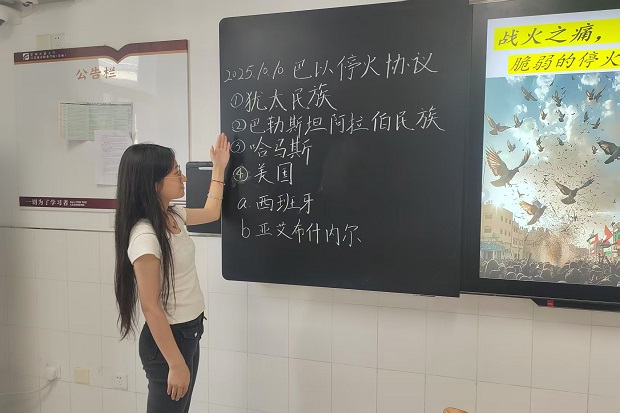 公告栏
一切为了学习者
2025.10.10 巴以停火协议
①犹太民族
②巴勒斯坦阿拉伯民族
③哈马斯
④美国
a 西班牙
b 亚艾布什内尔
战火之痛，
脆弱的停火